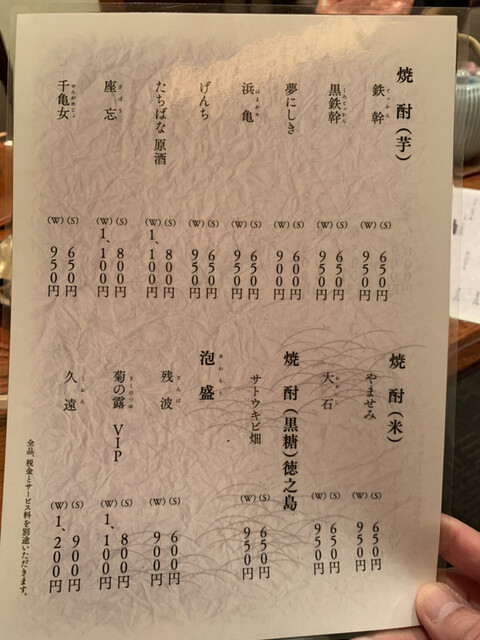 焼酎（芋）
鉄幹
てっかん
(S) 650円
(W) 950円
黒鉄幹
くろてっかん
(S) 650円
(W) 950円
夢にしき
(S) 600円
(W) 900円
浜亀
はまがめ
(S) 650円
(W) 950円
げんち
(S) 650円
(W) 950円
たちばな原酒
(S) 800円
(W) 1、100円
座忘
ざぼう
(S) 800円
(W) 1、100円
千亀女
せんがめじょ
(S) 650円
(W) 950円
焼酎（米）
やませみ
(S) 650円
(W) 950円
大石
おおいし
(S) 650円
(W) 950円
焼酎（黒糖）徳之島
サトウキビ畑
(S) 650円
(W) 950円
泡盛
あわもり
残波
ざんぱ
(S) 600円
(W) 900円
菊の露 VIP
きくのつゆ
(S) 800円
(W) 1、100円
久遠
くおん
(S) 900円
(W) 1、200円
全品、税金とサービス料を別途いただきます。